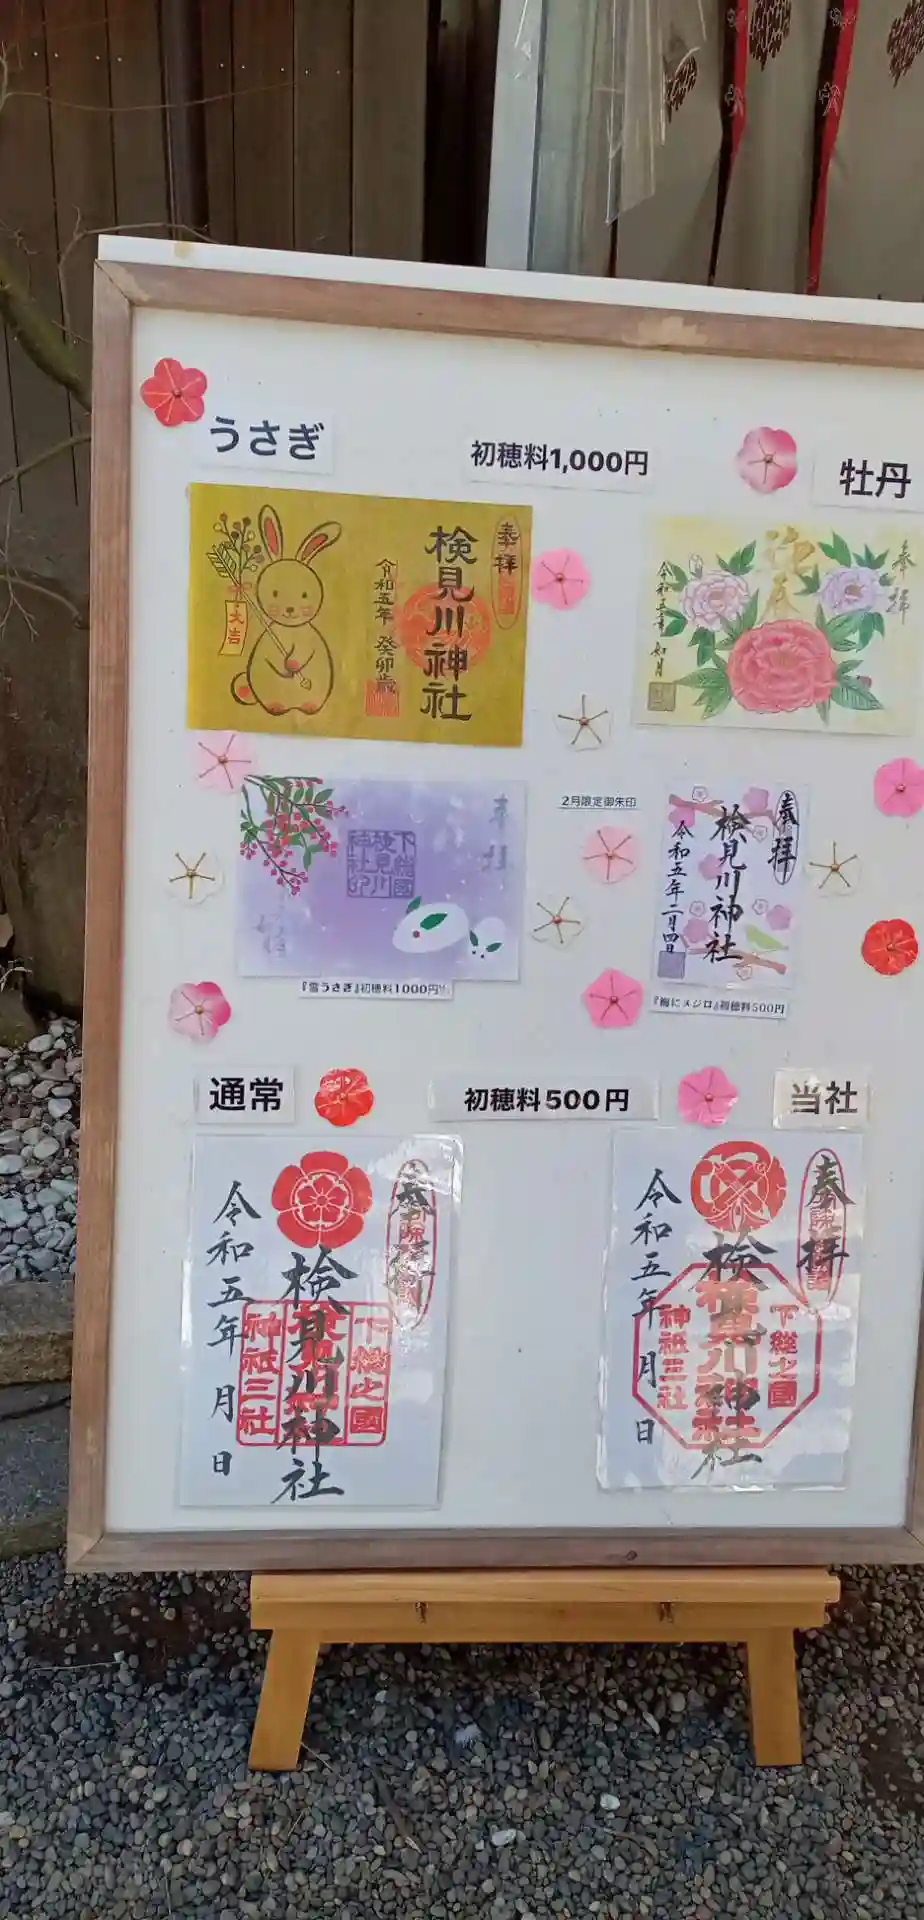 うさぎ
初穂料1,000円
牡丹
奉拝
検見川神社
令和五年 癸卯歳
大吉
奉拝
令和五年如月
奉拝
下総國
検見川
神社
『雪うさぎ』初穂料1000円
2月限定御朱印
奉拝
検見川神社
令和五年二月四日
『梅にメジロ』初穂料500円
通常
初穂料500円
当社
奉拝
検見川神社
令和五年 月 日
下総之國
神祇三社
奉拝
検見川神社
令和五年 月 日
下総之國
検見川神社
神祇三社